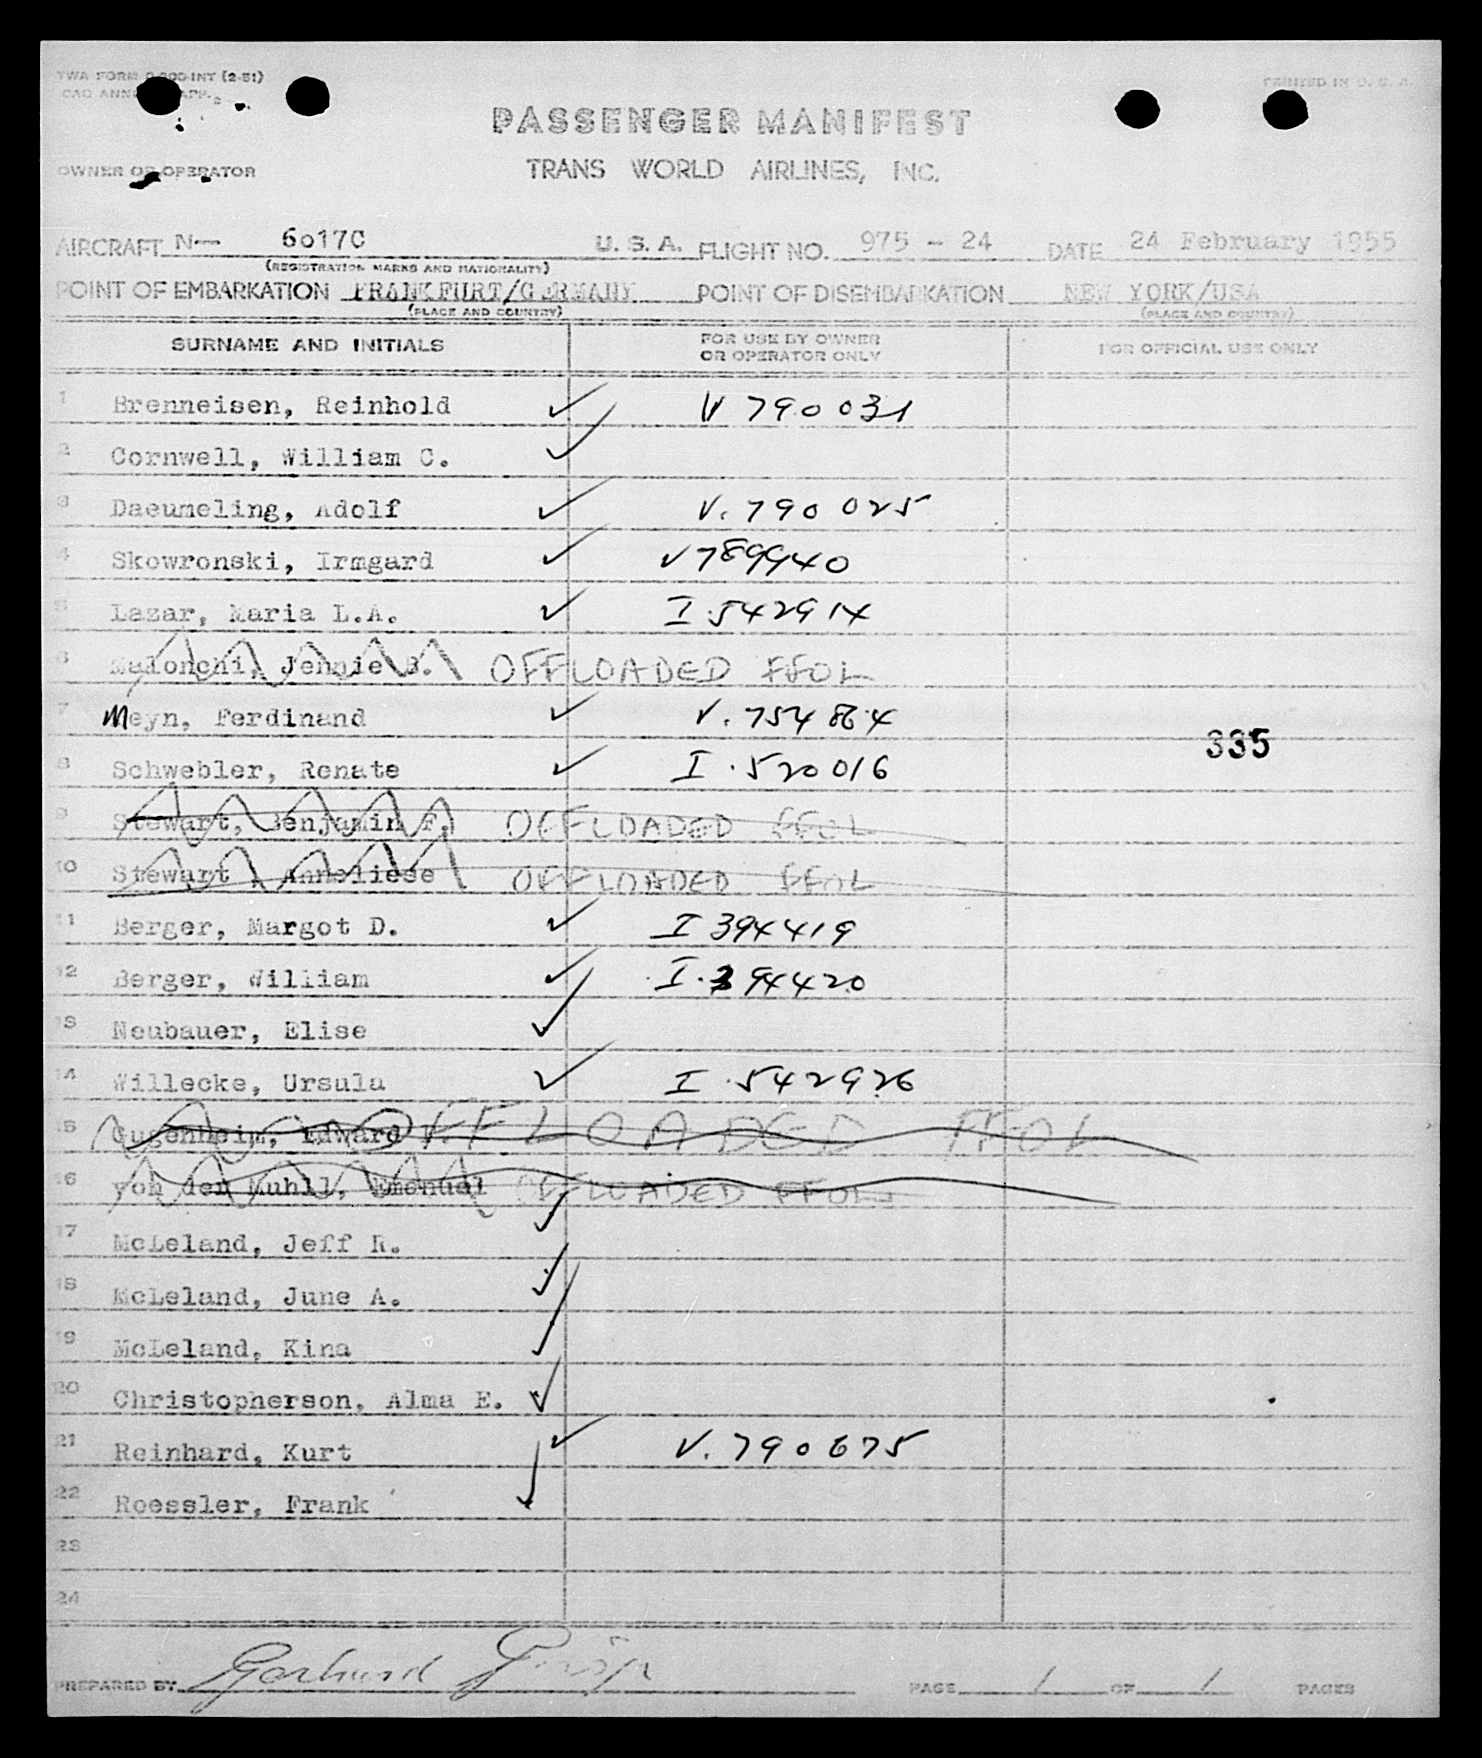 TWA FORM INT (2-51) PRINTED IN U. S. A.
PASSENGER MANIFEST
OWNER OR OPERATOR TRANS WORLD AIRLINES, INC.
AIRCRAFT N— 6017C U. S. A. FLIGHT NO. 975 - 24 DATE 24 February 1955
(REGISTRATION MARKS AND NATIONALITY)
POINT OF EMBARKATION FRANKFURT/GERMANY POINT OF DISEMBARKATION NEW YORK/USA
(PLACE AND COUNTRY) (PLACE AND COUNTRY)
SURNAME AND INITIALS FOR USE BY OWNER OR OPERATOR ONLY FOR OFFICIAL USE ONLY
1 Brenneisen, Reinhold ✓ V 790031
2 Cornwell, William C. ✓
3 Daeumeling, Adolf ✓ V. 790 025
4 Skowronski, Irmgard ✓ V 789940
5 Lazar, Maria L.A. ✓ I 542914
6 Malonchi, Jennie B. OFFLOADED FFOL
7 Meyn, Ferdinand ✓ V. 754 884
335
8 Schwebler, Renate ✓ I. 520016
9 Stewart, Benjamin F. OFFLOADED FFOL
10 Stewart, Anneliese OFFLOADED FFOL
11 Berger, Margot D. ✓ I 394419
12 Berger, William ✓ I. 394420
13 Neubauer, Elise ✓
14 Willecke, Ursula ✓ I. 542926
15 Gugenheim, Edward OFFLOADED FFOL
16 von der Muhll, Emanuel OFFLOADED FFOL
17 McLeland, Jeff R. ✓
18 McLeland, June A. ✓
19 McLeland, Kina ✓
20 Christopherson, Alma E. ✓
21 Reinhard, Kurt ✓ V. 790675
22 Roessler, Frank ✓
23
24
PREPARED BY PAGE 1 OF 1 PAGES